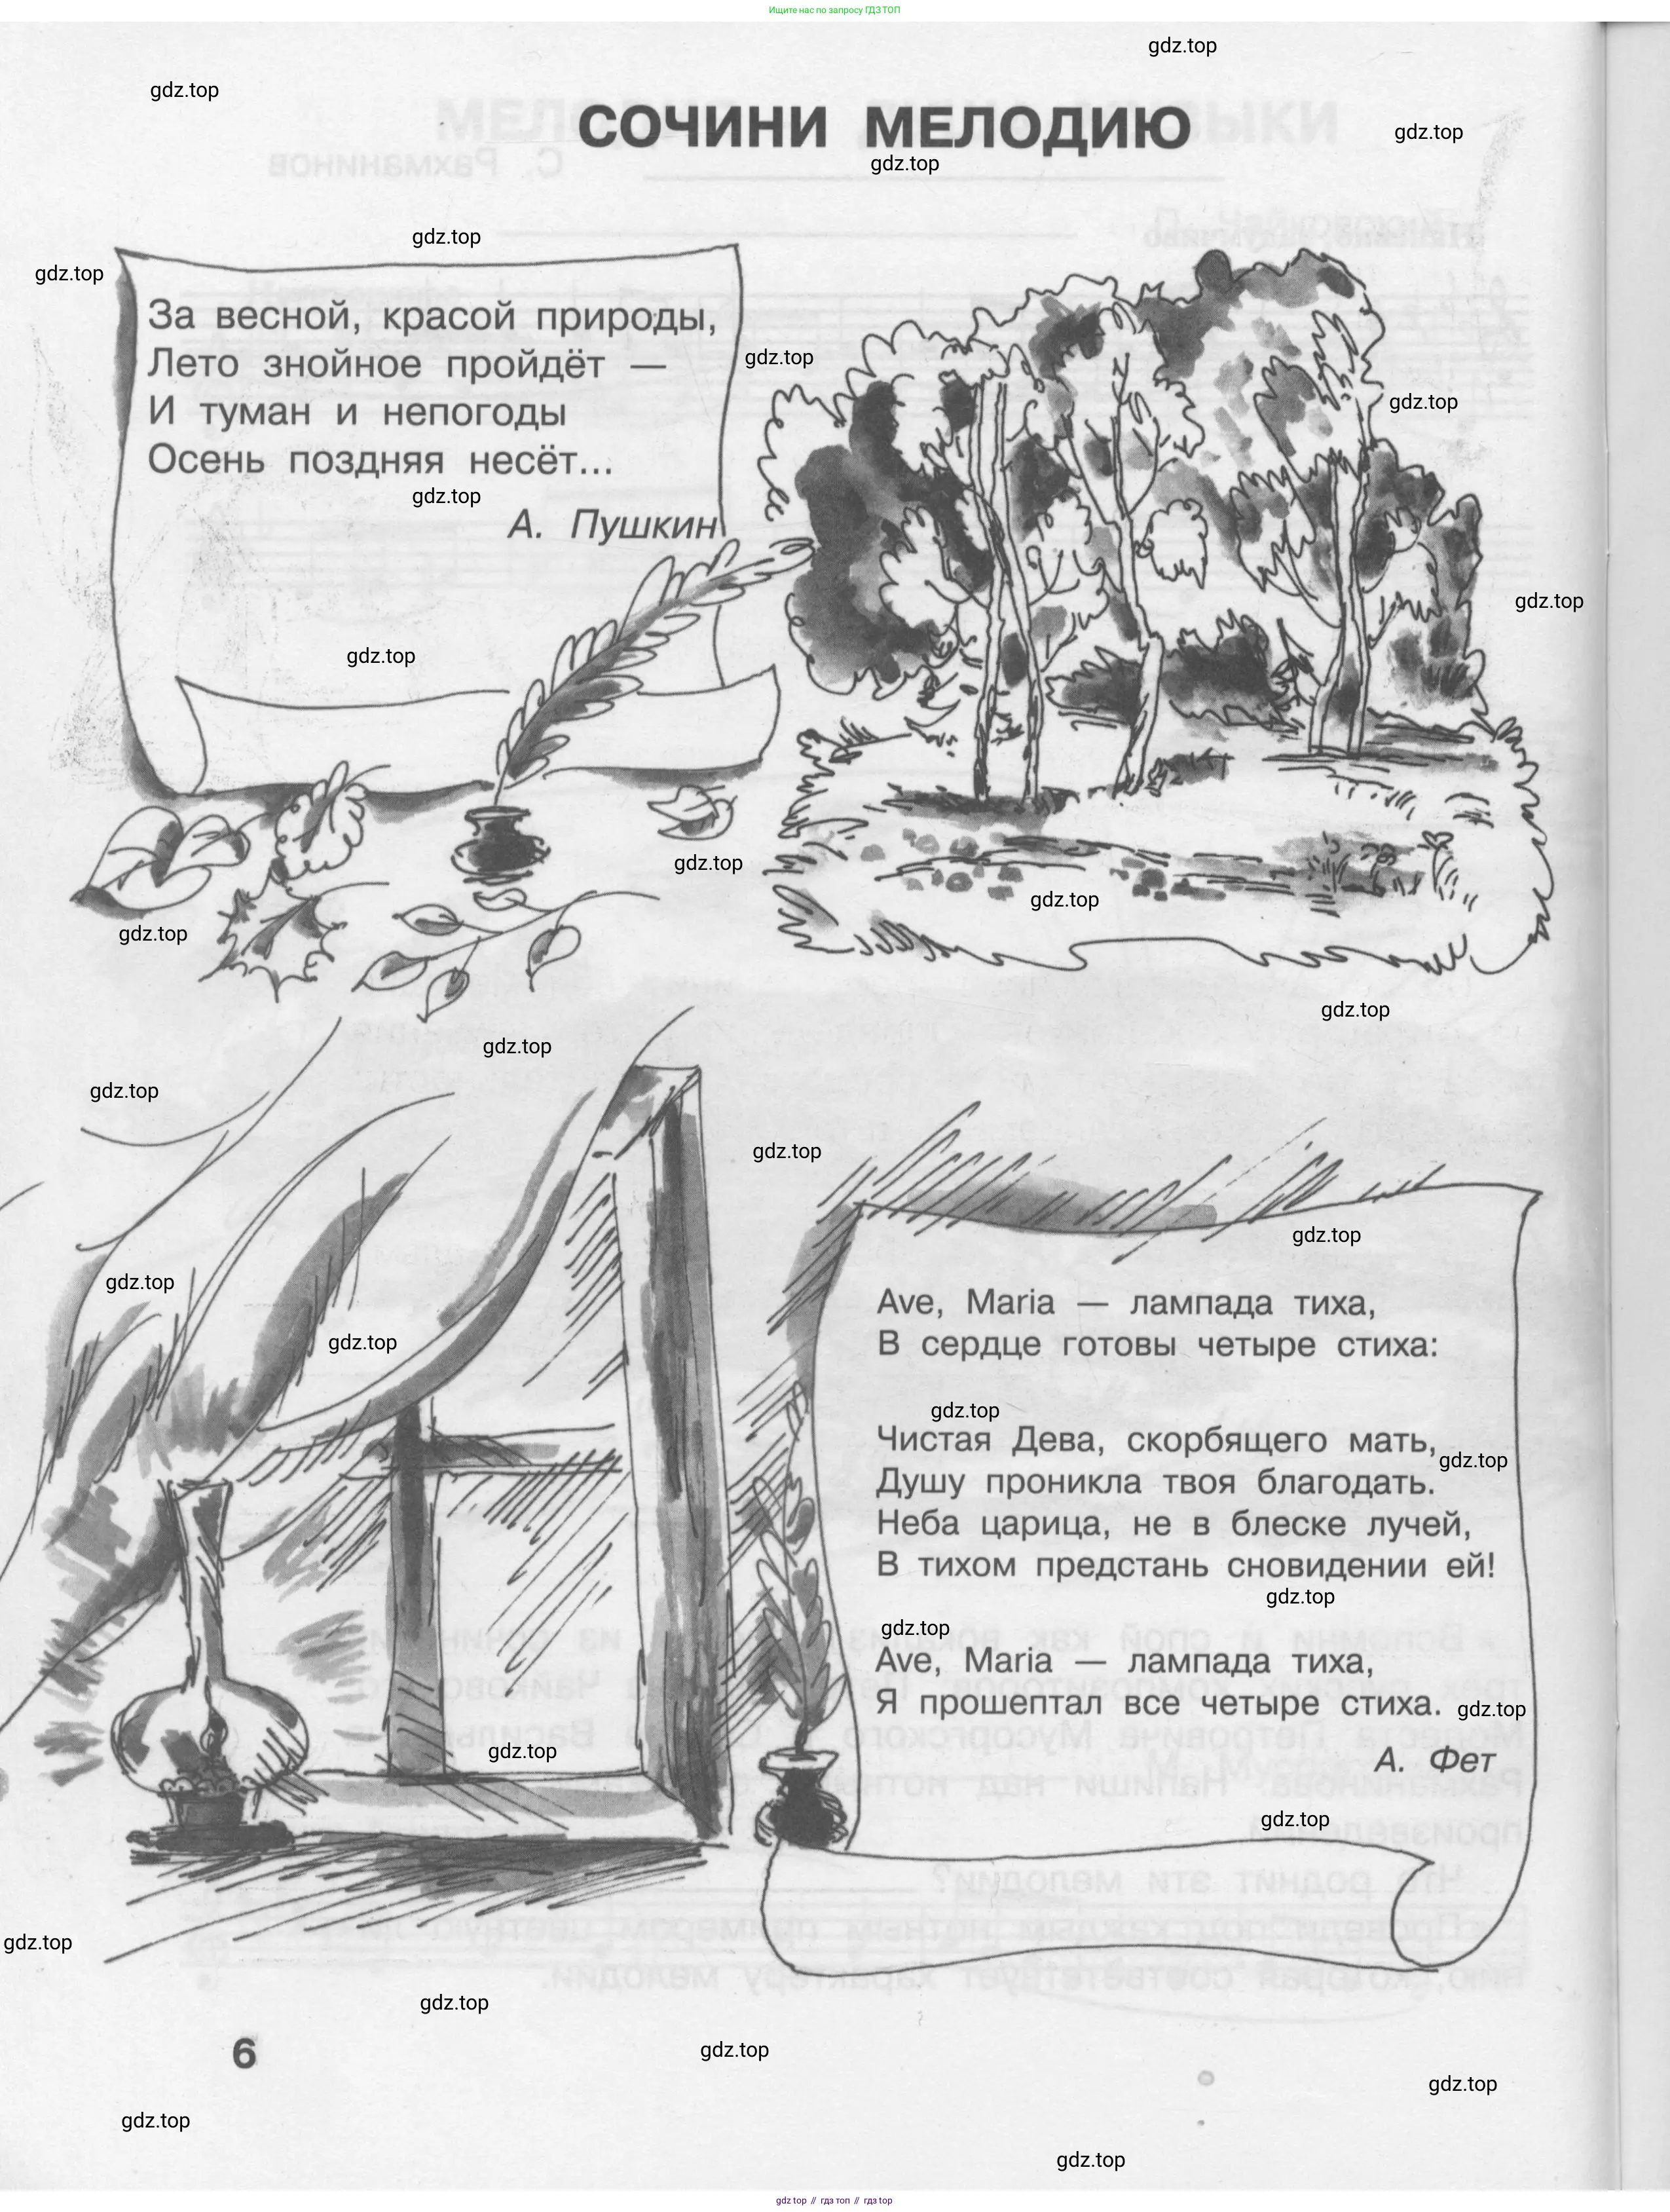 Ищите нас по запросу ГДЗ ТОП
gdz.top
gdz.top
СОЧИНИ МЕЛОДИЮ
gdz.top
gdz.top
gdz.top
gdz.top
За весной, красой природы,
Лето знойное пройдёт —
И туман и непогоды
Осень поздняя несёт...
А. Пушкин
gdz.top
gdz.top
gdz.top
gdz.top
gdz.top
gdz.top
gdz.top
gdz.top
gdz.top
gdz.top
gdz.top
gdz.top
gdz.top
gdz.top
Ave, Maria — лампада тиха,
В сердце готовы четыре стиха:
gdz.top
gdz.top
Чистая Дева, скорбящего мать,
gdz.top
Душу проникла твоя благодать.
Неба царица, не в блеске лучей,
В тихом предстань сновидении ей!
gdz.top
gdz.top
Ave, Maria — лампада тиха,
Я прошептал все четыре стиха.
gdz.top
gdz.top
А. Фет
gdz.top
gdz.top
gdz.top
6
gdz.top
gdz.top
gdz.top
gdz.top
gdz top // гдз топ // гдз top